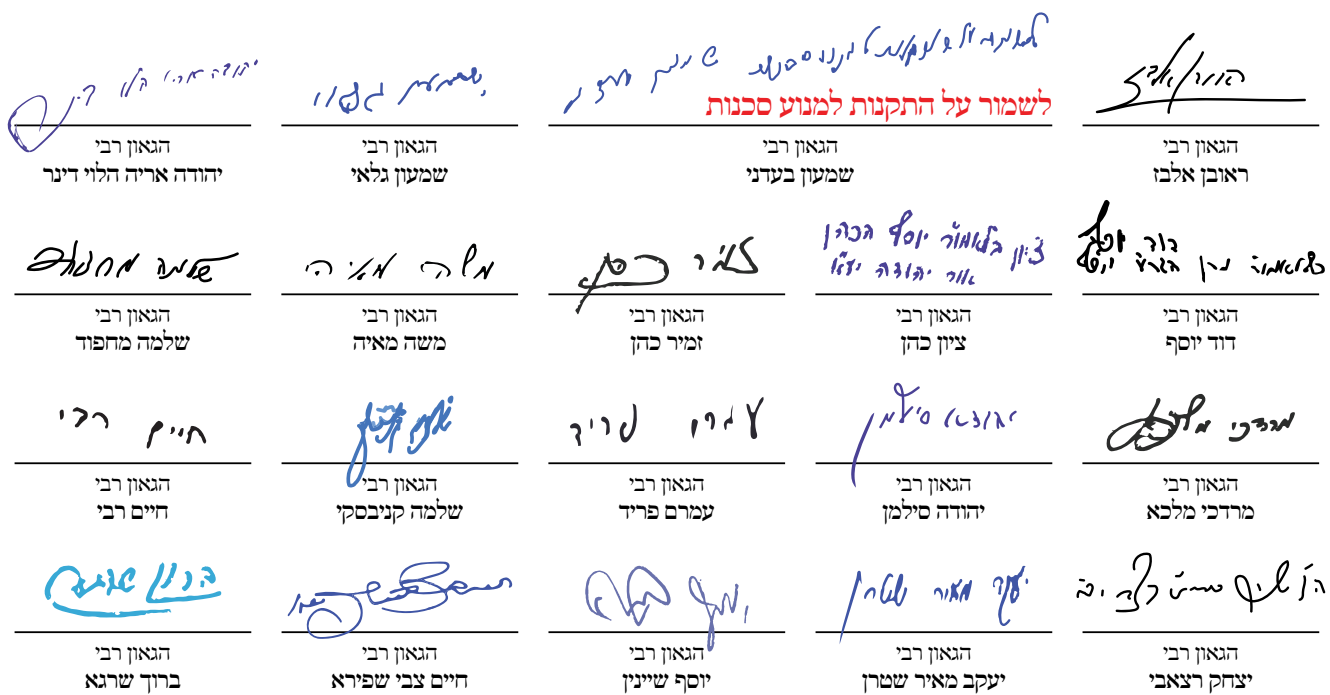 לשמור על התקנות למנוע סכנות
הגאון רבי
ראובן אלבז
הגאון רבי
שמעון בעדני
הגאון רבי
שמעון גלאי
הגאון רבי
יהודה אריה הלוי דינר
דוד יוסף
ציון בלאאמו"ר יוסף הכהן
הגאון רבי
דוד יוסף
הגאון רבי
ציון כהן
זמיר כהן
הגאון רבי
זמיר כהן
משה מאיה
הגאון רבי
משה מאיה
שלמה מחפוד
הגאון רבי
שלמה מחפוד
מרדכי מלכא
הגאון רבי
מרדכי מלכא
יהודא סילמן
הגאון רבי
יהודה סילמן
עמרם פריד
הגאון רבי
עמרם פריד
הגאון רבי
שלמה קניבסקי
חיים רבי
הגאון רבי
חיים רבי
הגאון רבי
יצחק רצאבי
יעקב מאיר שטרן
הגאון רבי
יעקב מאיר שטרן
הגאון רבי
יוסף שיינין
הגאון רבי
חיים צבי שפירא
ברוך שרגא
הגאון רבי
ברוך שרגא